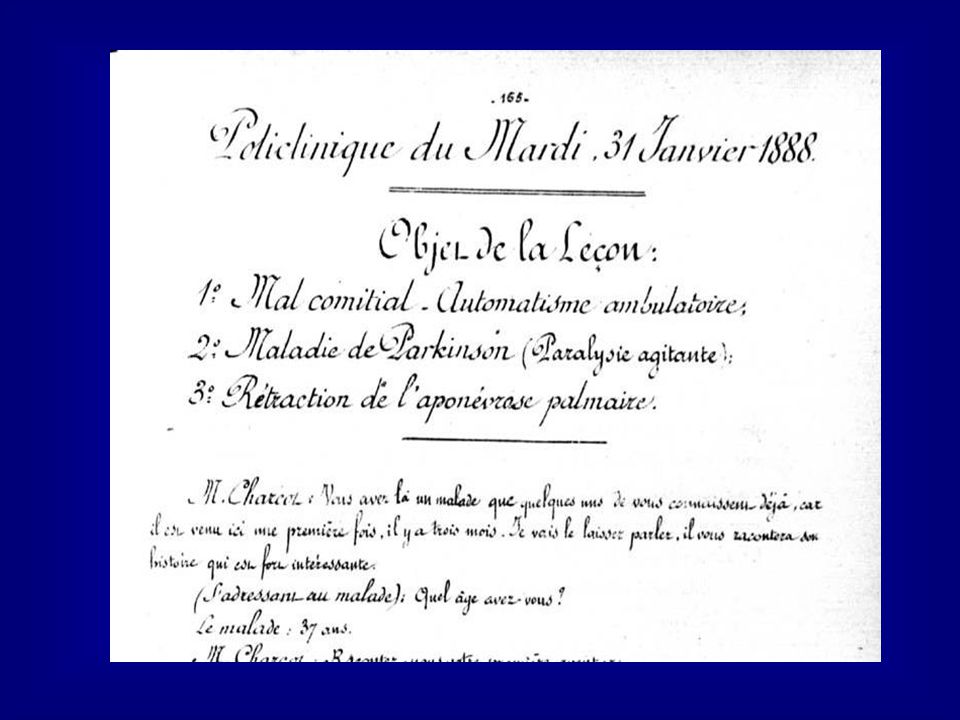 . 165 .
Policlinique du Mardi . 31 Janvier 1888.
Objet de la Leçon :
1º. Mal comitial - Automatisme ambulatoire ;
2º. Maladie de Parkinson (Paralysie agitante) ;
3º. Rétraction de l'aponévrose palmaire .
M. Charcot : Vous avez là un malade que quelques uns de vous connaissent déjà , car
il est venu ici une première fois , il y a trois mois . Je vais le laisser parler , il vous racontera son
histoire qui est fort intéressante .
(S'adressant au malade) : Quel âge avez-vous ?
Le malade : 37 ans .
M. Charcot : Racontez-nous votre première